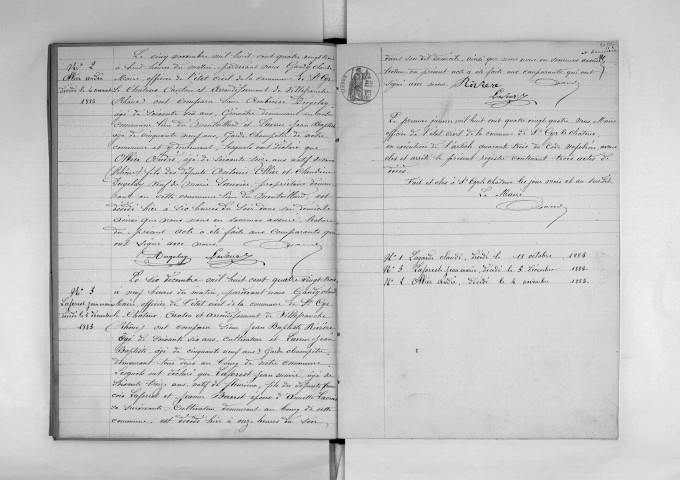 N° 2
Ollier André
décédé le 4 novembre
1883
Le cinq novembre mil huit cent quatre vingt trois
à huit heures du matin, pardevant nous Gandy Claude
Maire, officier de l'état civil de la commune de St Cyr
le Chatoux, Canton et arrondissement de Villefranche
(Rhône) ont comparu Sieur Dugeley,
âgé de soixante six ans,
commune lieu du et Jean Baptiste
âgé de cinquante neuf ans, Garde Champêtre de notre
commune et y demeurant, lesquels ont déclaré que
Ollier André, âgé de soixante ans natif de
(Rhône) fils des défunts Antoine Ollier et Claudine
Dugelay veuf de Marie propriétaire demeu
rant en cette commune lieu du est
décédé hier à six heures du soir dans son domicile
ainsi que nous nous en sommes assuré. Lecture
du présent acte a été faite aux comparants qui
ont signé avec nous.
Dugeley
N° 3
Laforest jean marie
décédé le 5 décembre
1883
Le six décembre mil huit cent quatre vingt trois
à neuf heures du matin, pardevant nous Gandy Claude
Maire, officier de l'état civil de la commune de St Cyr
le Chatoux, Canton et arrondissement de Villefranche
(Rhône) ont comparu Sieur Jean Baptiste Rivière
âgé de soixante six ans, cultivateur et Jean
Baptiste, âgé de cinquante neuf ans, Garde champêtre,
demeurant tous deux au bourg de notre commune
Lesquels ont déclaré que Laforest jean marie, âgé de
soixante ans, natif de fils des défunts fran
çois Laforest et jeanne époux d'Annette
sa survivante, Cultivateur demeurant au bourg de cette
commune, est décédé hier à onze heures du soir
dans son dit domicile, ainsi que nous nous en sommes assuré
Lecture du présent acte a été faite aux comparants qui ont
signé avec nous. Rivière
Le premier janvier mil huit cent quatre vingt quatre, nous Maire
officier de l'état civil de la commune de St Cyr le Chatoux,
en exécution de l'article quarante trois du Code napoléon, avons
clos et arrêté le présent registre contenant trois actes de
décès.
Fait et clos à St Cyr le Chatoux les jour mois et an susdits.
Le Maire
N° 1 Lagarde claude, décédé le 18 octobre 1883
N° 3 Laforest jean marie, décédé le 5 décembre 1883
N° 2 Ollier André, décédé le 4 novembre 1883